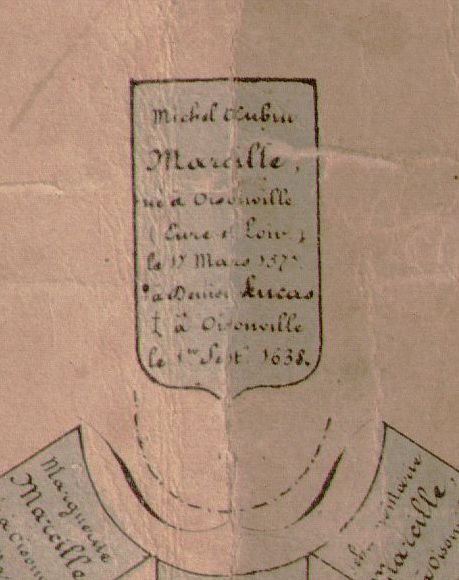 Michel Aubin
Marcille,
né à Oisonville
(Eure et Loir)
le 17 Mars 157
à Denise Lucas
† à Oisonville
le 1er Septe 1638.
Marguerite
Marcille
à Oison
Marcille,
à Oison